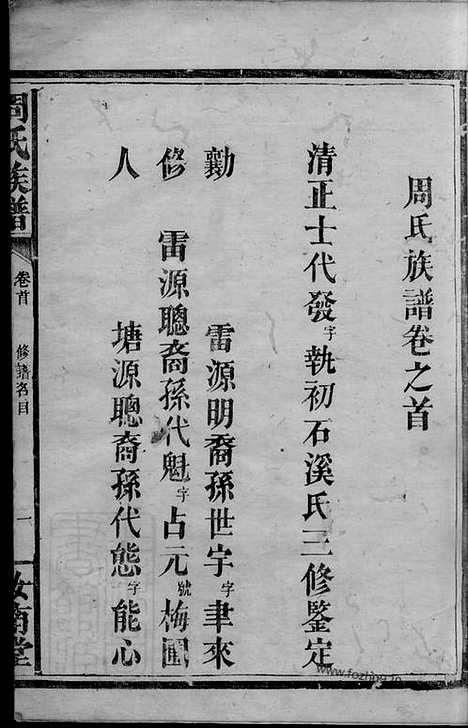 周氏族譜卷之首
清正士代發字執初石溪氏三修鑒定
勷 雷源明裔孫世宇字聿來
修 雷源聰裔孫代魁字占元號梅圃
人 塘源聰裔孫代態字能心
周氏族譜 卷首 修譜名目 一 汝南堂
www.fozhting.io